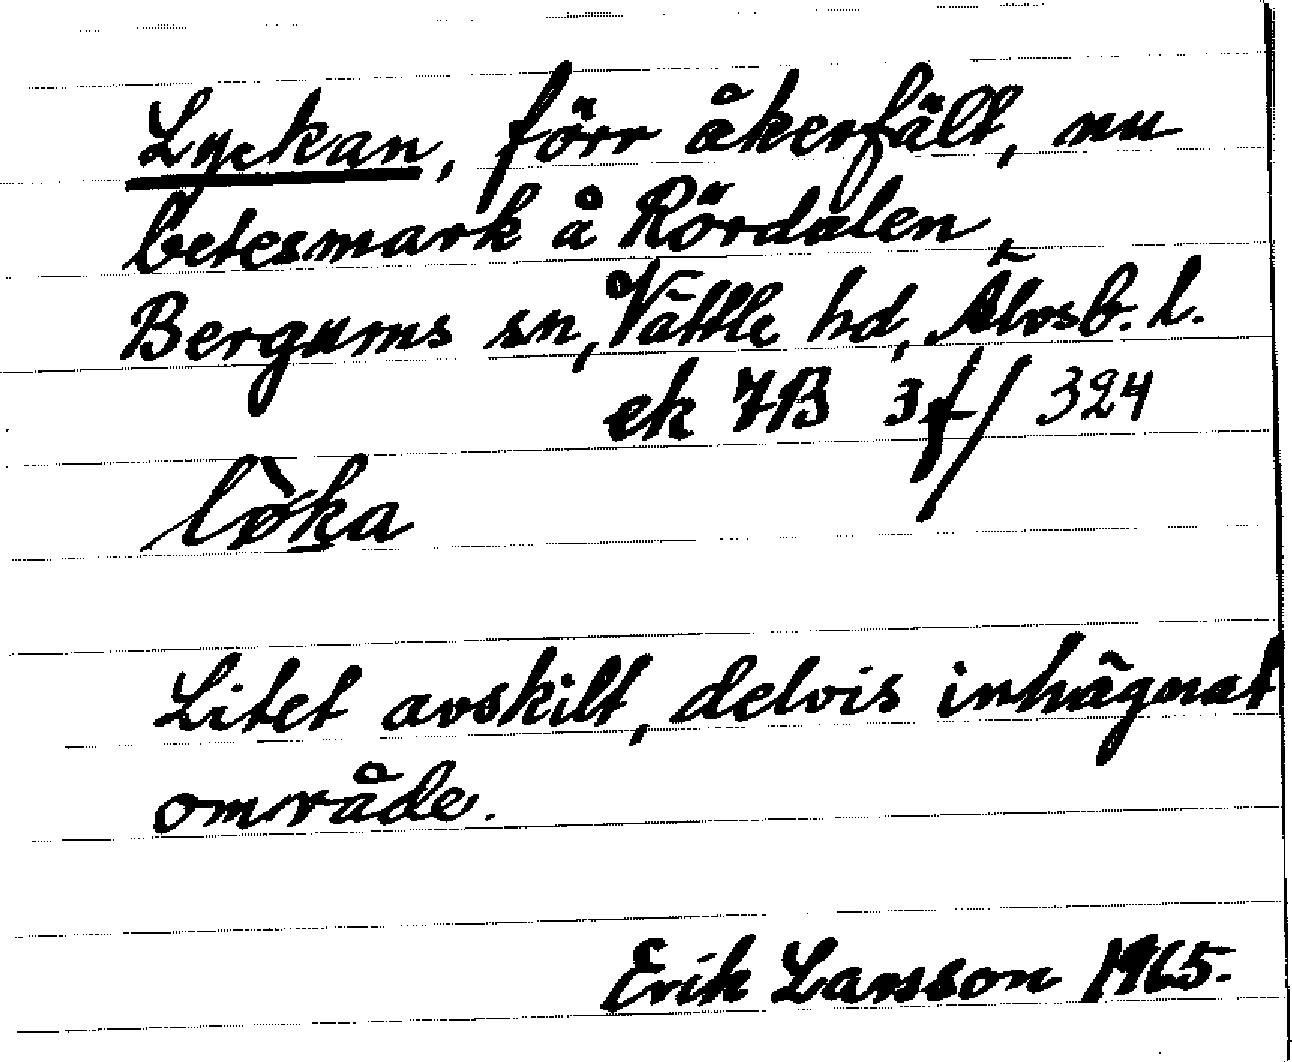 Lyckan, förr åkerfält, nu
betesmark å Rördalen,
Bergums sn, Vättle hd, Älvsb. l.
ek 7B 3f/ 324
lø̀ka
Litet avskilt, delvis inhägnat
område.
Erik Larsson 1965.